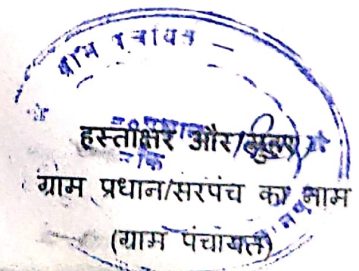 ग्राम पंचायत
हस्ताक्षर और/मुहर
ग्राम प्रधान/सरपंच का नाम
(ग्राम पंचायत)